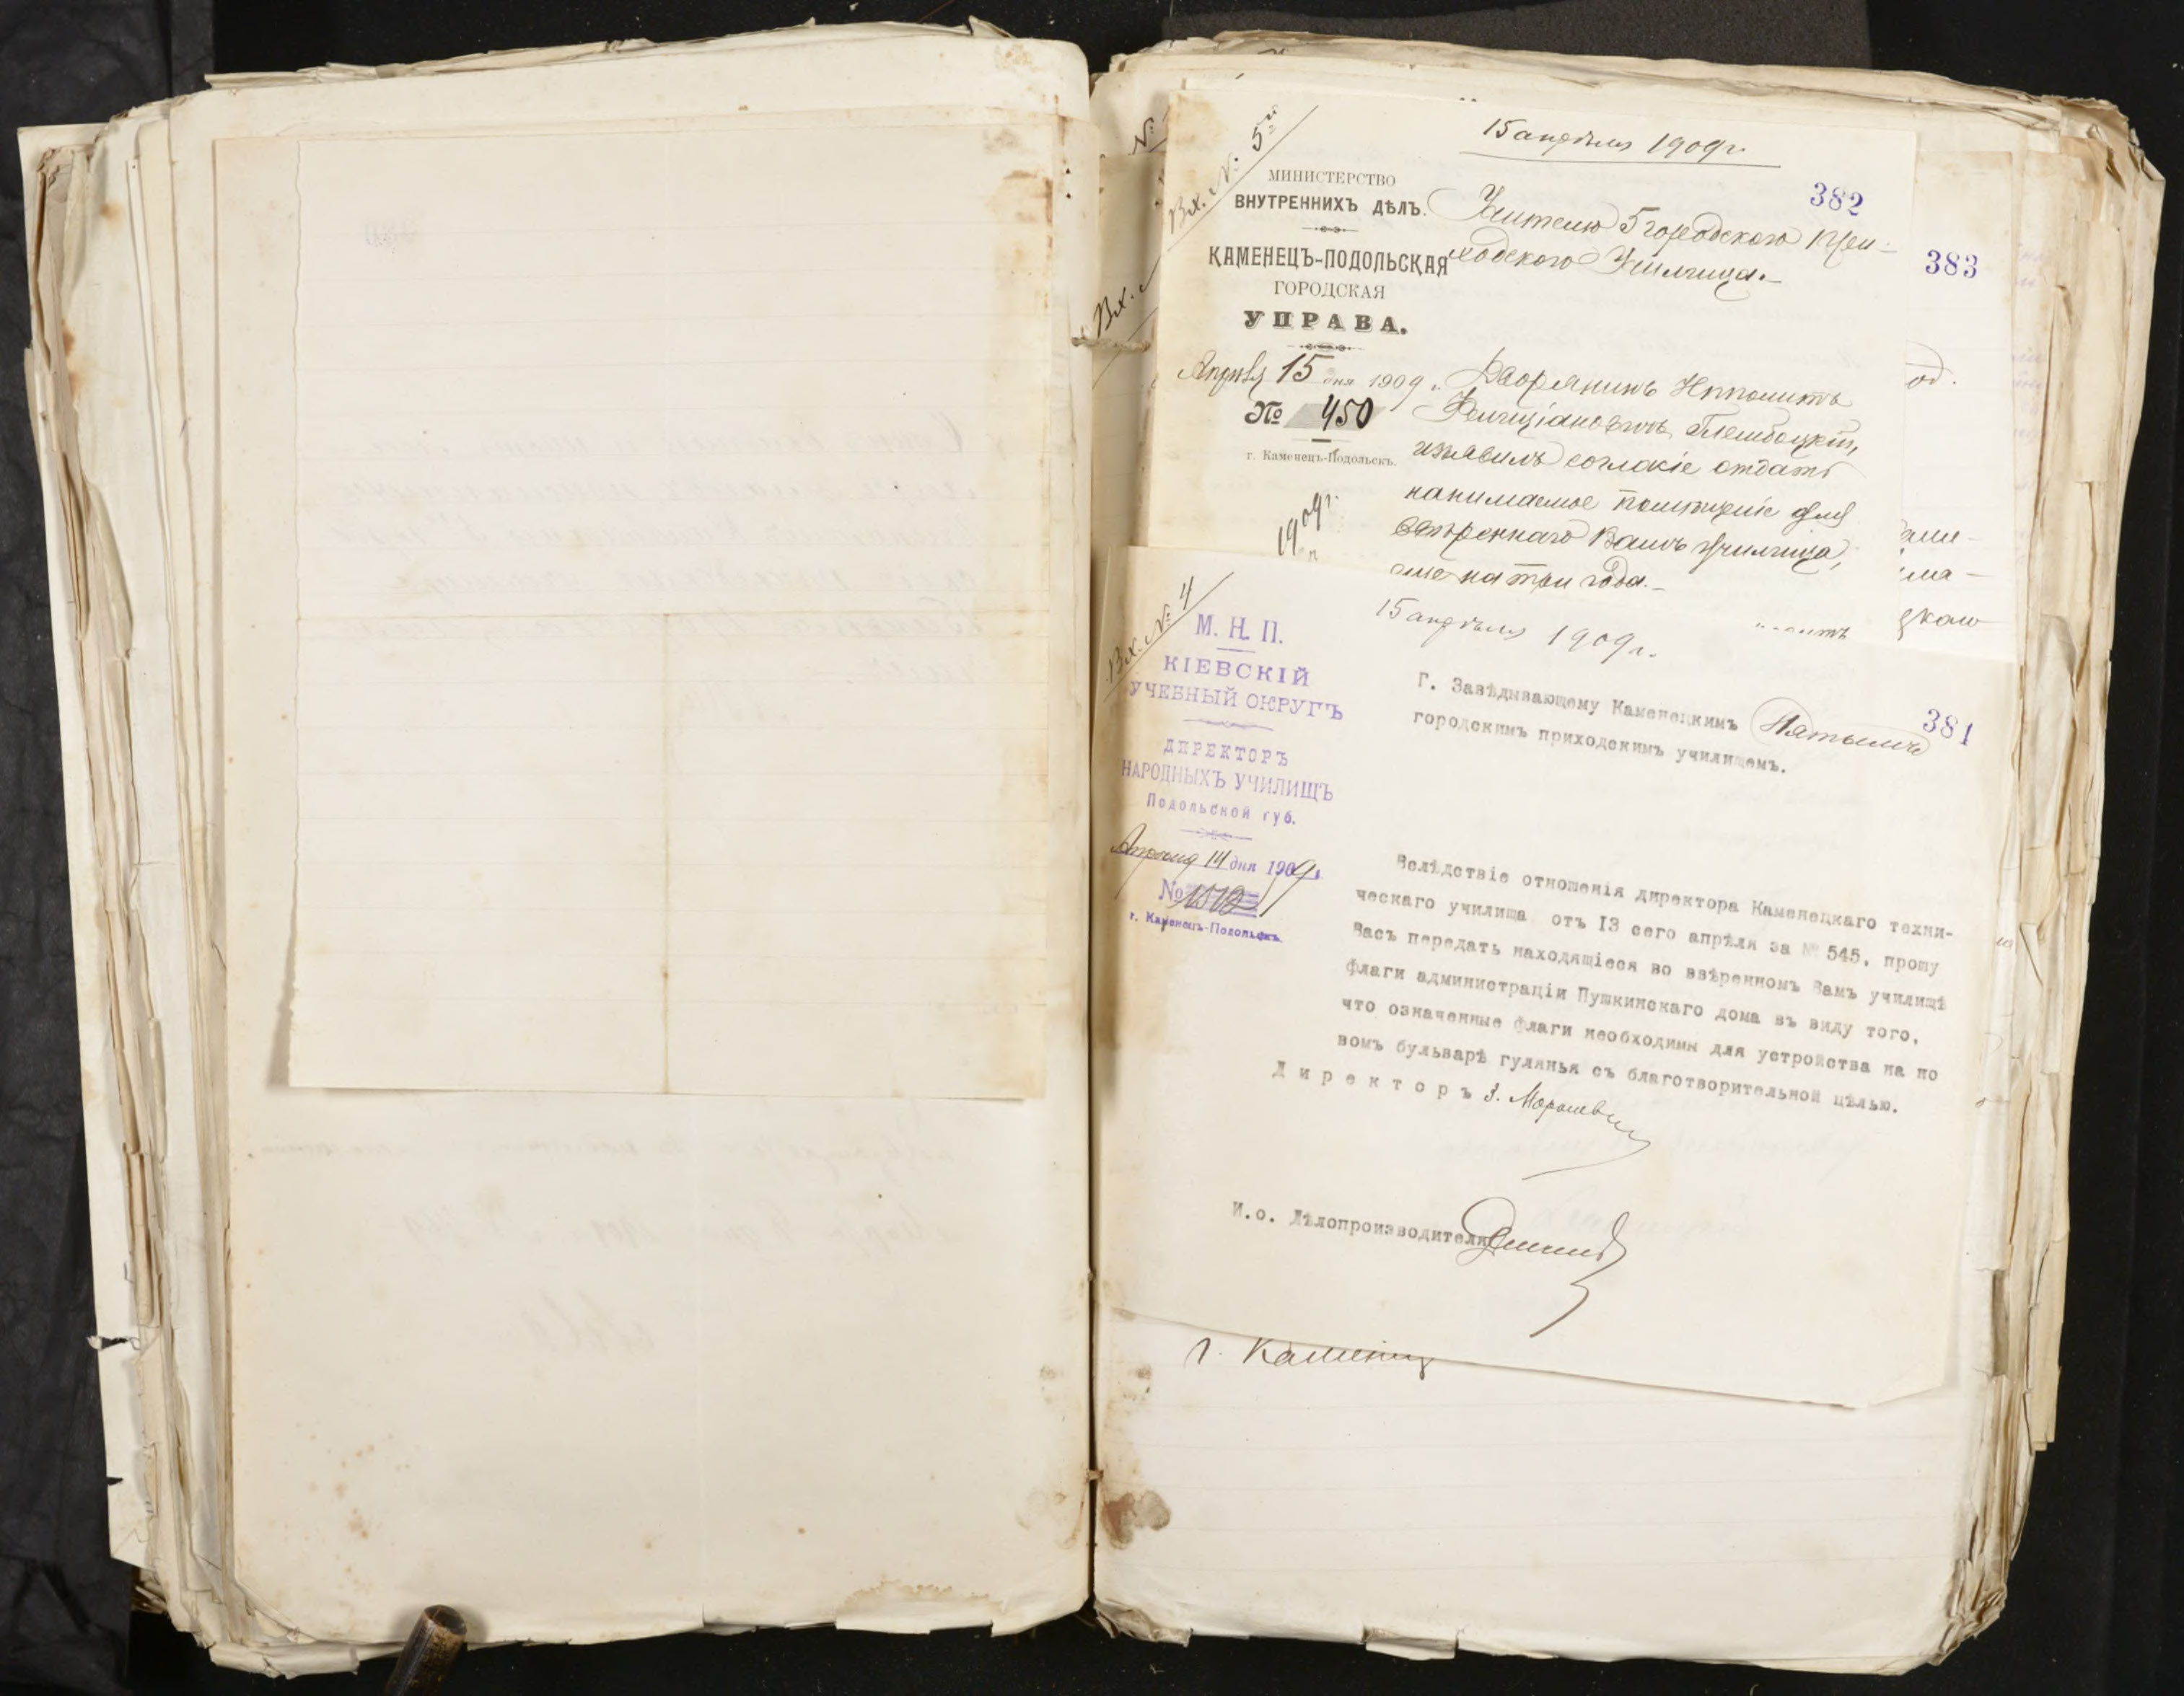 Вх. №: 5й
15 апрѣля 1909 г.
382
МИНИСТЕРСТВО
ВНУТРЕННИХЪ ДѢЛЪ.
КАМЕНЕЦЪ-ПОДОЛЬСКАЯ
ГОРОДСКАЯ
УПРАВА.
Апрѣля 15 дня 1909 г.
№ 450
г. Каменецъ-Подольскъ.
Учителю 5 городского При-
ходского Училища.
Дворянинъ Ипполитъ
Фелиціановичъ Глембоцкій,
изъявилъ согласіе отдать
нанимаемое помѣщеніе для
ввѣреннаго Вамъ училища,
еще на три года.
383
Вх.
1909 г.
Вх. №: 4
15 апрѣля 1909 г.
М. Н. П.
КІЕВСКІЙ
УЧЕБНЫЙ ОКРУГЪ
ДИРЕКТОРЪ
НАРОДНЫХЪ УЧИЛИЩЪ
Подольской губ.
Апрѣля 14 дня 1909 г.
№
г. Каменецъ-Подольскъ
381
Г. Завѣдывающему Каменецкимъ Пятымъ
городскимъ приходскимъ училищемъ.
Вслѣдствіе отношенія директора Каменецкаго техни-
ческаго училища отъ I3 сего апрѣля за № 545, прошу
Васъ передать находящіеся во ввѣренномъ Вамъ училищѣ
флаги администраціи Пушкинскаго дома въ виду того,
что означенные флаги необходимы для устройства на но
вомъ бульварѣ гулянья съ благотворительной цѣлью.
Директоръ
И.о. Дѣлопроизводителя
г. Каменец